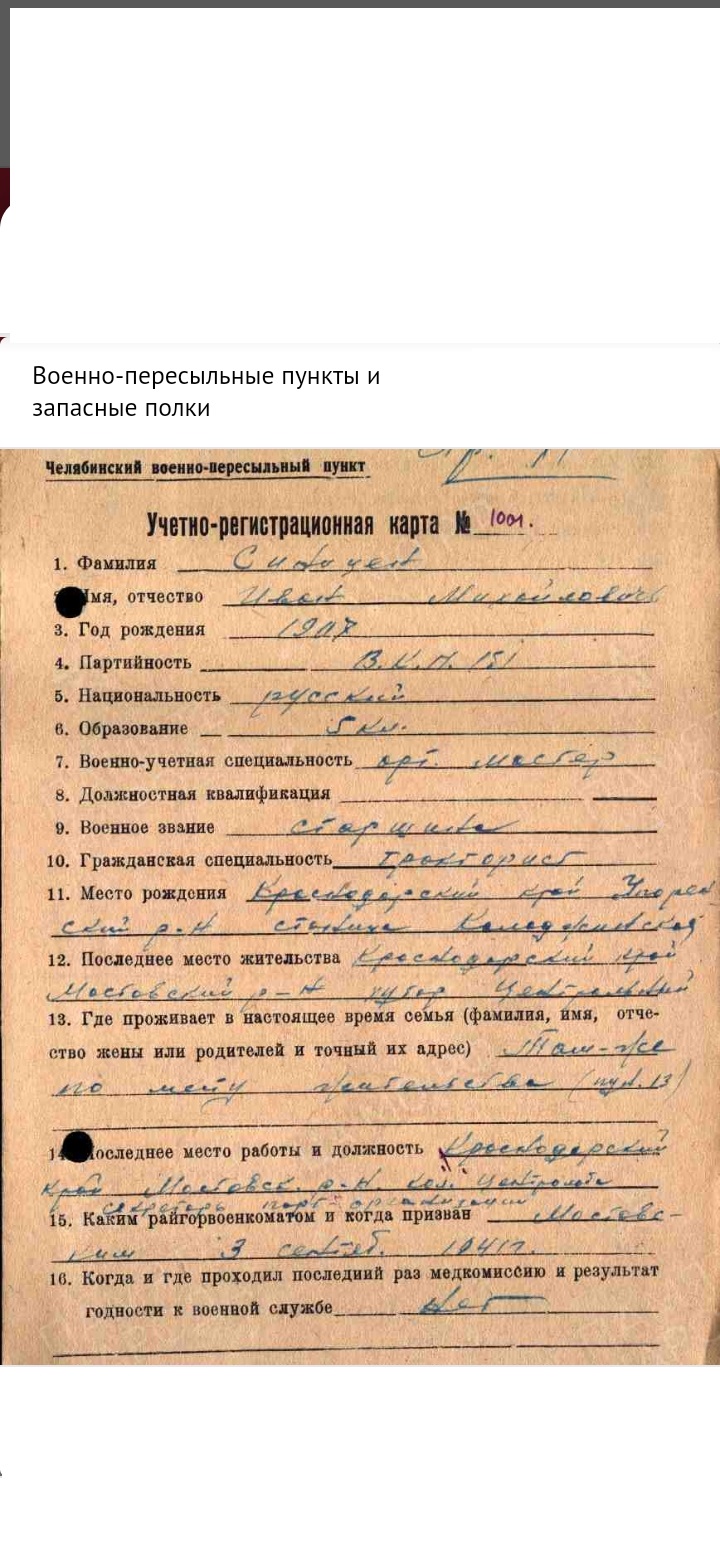 Военно-пересыльные пункты и
запасные полки
Челябинский военно-пересыльный пункт
Учетно-регистрационная карта №
1. Фамилия
Имя, отчество Иван Михайлович
3. Год рождения 1907
4. Партийность В.К.П. (б)
5. Национальность русский
6. Образование 5 кл.
7. Военно-учетная специальность арт. мастер
8. Должностная квалификация
9. Военное звание старшина
10. Гражданская специальность тракторист
11. Место рождения Краснодарский край
ский р-н станица
12. Последнее место жительства Краснодарский край
Мостовский р-н хутор Центральный
13. Где проживает в настоящее время семья (фамилия, имя, отче-
ство жены или родителей и точный их адрес) Там-же
по месту жительства
14 Последнее место работы и должность Краснодарский
край Мостовск. р-н.
секретарь парт организации
15. Каким райгорвоенкоматом и когда призван Мостовс-
ким 3 сентяб. 1941 г.
16. Когда и где проходил последний раз медкомиссию и результат
годности к военной службе Нет